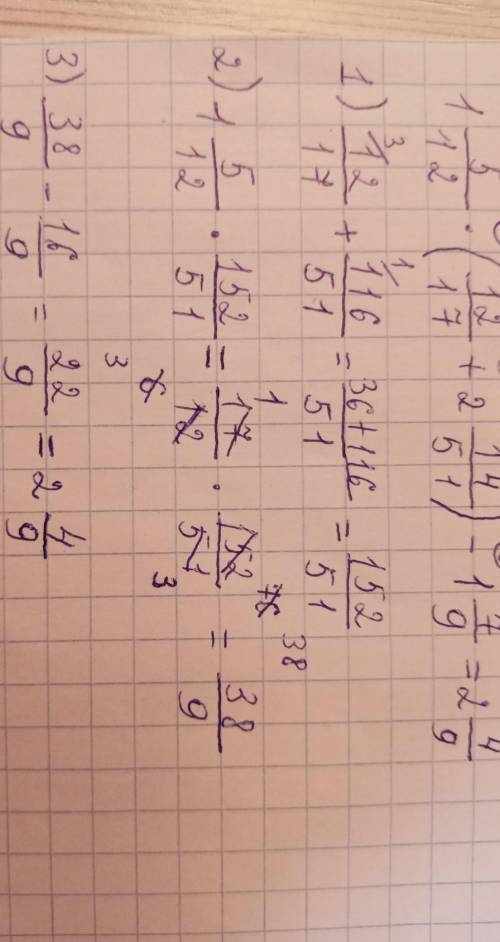 1 5/12 · (12/17 + 2 14/51) - 1 7/9 = 2 4/9
1) 12/17 ³ + 116/51 ¹ = 36+116/51 = 152/51
2) 1 5/12 · 152/51 = 17/12 · 152/51 = 38/9
1 76 38
6 3 3
3) 38/9 - 16/9 = 22/9 = 2 4/9